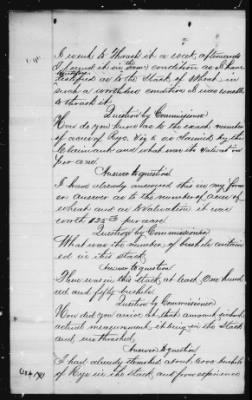 I went to Thrash it a week afterwards
I found it in the same condition as I have
testified as to the Stack of Wheat, in
such a worthless condition I was unable
to thrash it.
Question by Commissioner
How do you know as to the exact number
of acres of Rye, Viz 6 as claimed by the
Claimant and what was its value
per acre.
Answer to question
I have already answered this in my former
answer as to the number of acres of
wheat and as to valuation it was
worth $25 00 per acre.
Question by Commissioner
What was the number of bushels contained
in this Stack
Answer to question
There was in this Stack at least One hundred
and fifty bushels.
Question by Commissioner
How did you arrive at that amount without
actual measurement, it being in the Stack
and unthrashed.
Answer to question
I had already thrashed about bushels
of Rye in the Stack and from experience